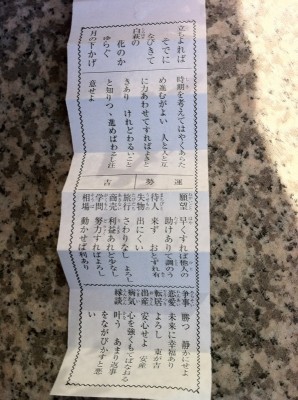 立ちよれば
そでに
なびきて
白萩の
花のか
ゆらぐ
月の下かげ
時期を考えてはやくあらた
め進むがよい 人と人と互
に力あわせてすればよきと
きあり けれどわるいこと
と知りつゝ進めばわるし注
意せよ
運勢 吉
願望 早くすれば他人の
助けありて調のう
待人 来ず おとずれ有
失物 出にくい
旅行 さわりなし よろし
商売 利益あれど少なし
学問 努力すればよろし
相場 動かせば利あり
争事 勝つ 静かにせよ
恋愛 未来に幸福あり
転居 よろし 東が吉
出産 安心せよ 安産
病気 心を強くもてばなおる
縁談 叶う あまり返事
をながびかすと悪
い